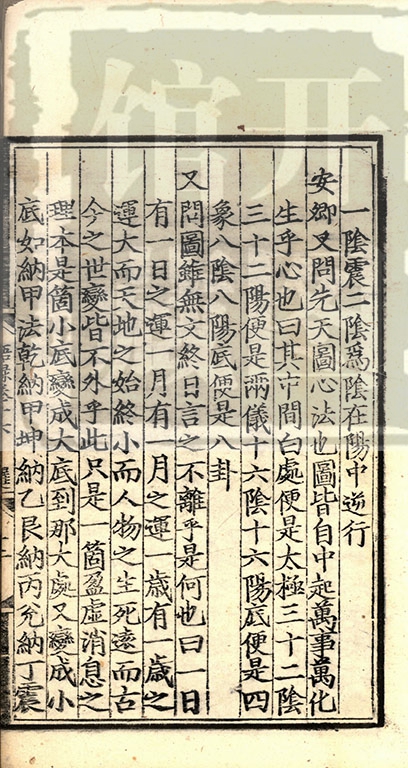 一陰震二陰爲陰在陽中逆行
安卿又問先天圖心法也圖皆自中起萬事萬化
生乎心也曰其中間白處便是太極三十二陰
三十二陽便是兩儀十六陰十六陽底便是四
象八陰八陽底便是八卦
又問圖雖無文終日言之不離乎是何也曰一日
有一日之運一月有一月之運一歲有一歲之
運大而天地之始終小而人物之生死遠而古
今之世變皆不外乎此只是一箇盈虛消息之
理本是箇小底變成大底到那大處又變成小
底如納甲法乾納甲坤納乙艮納丙兌納丁震
开馆